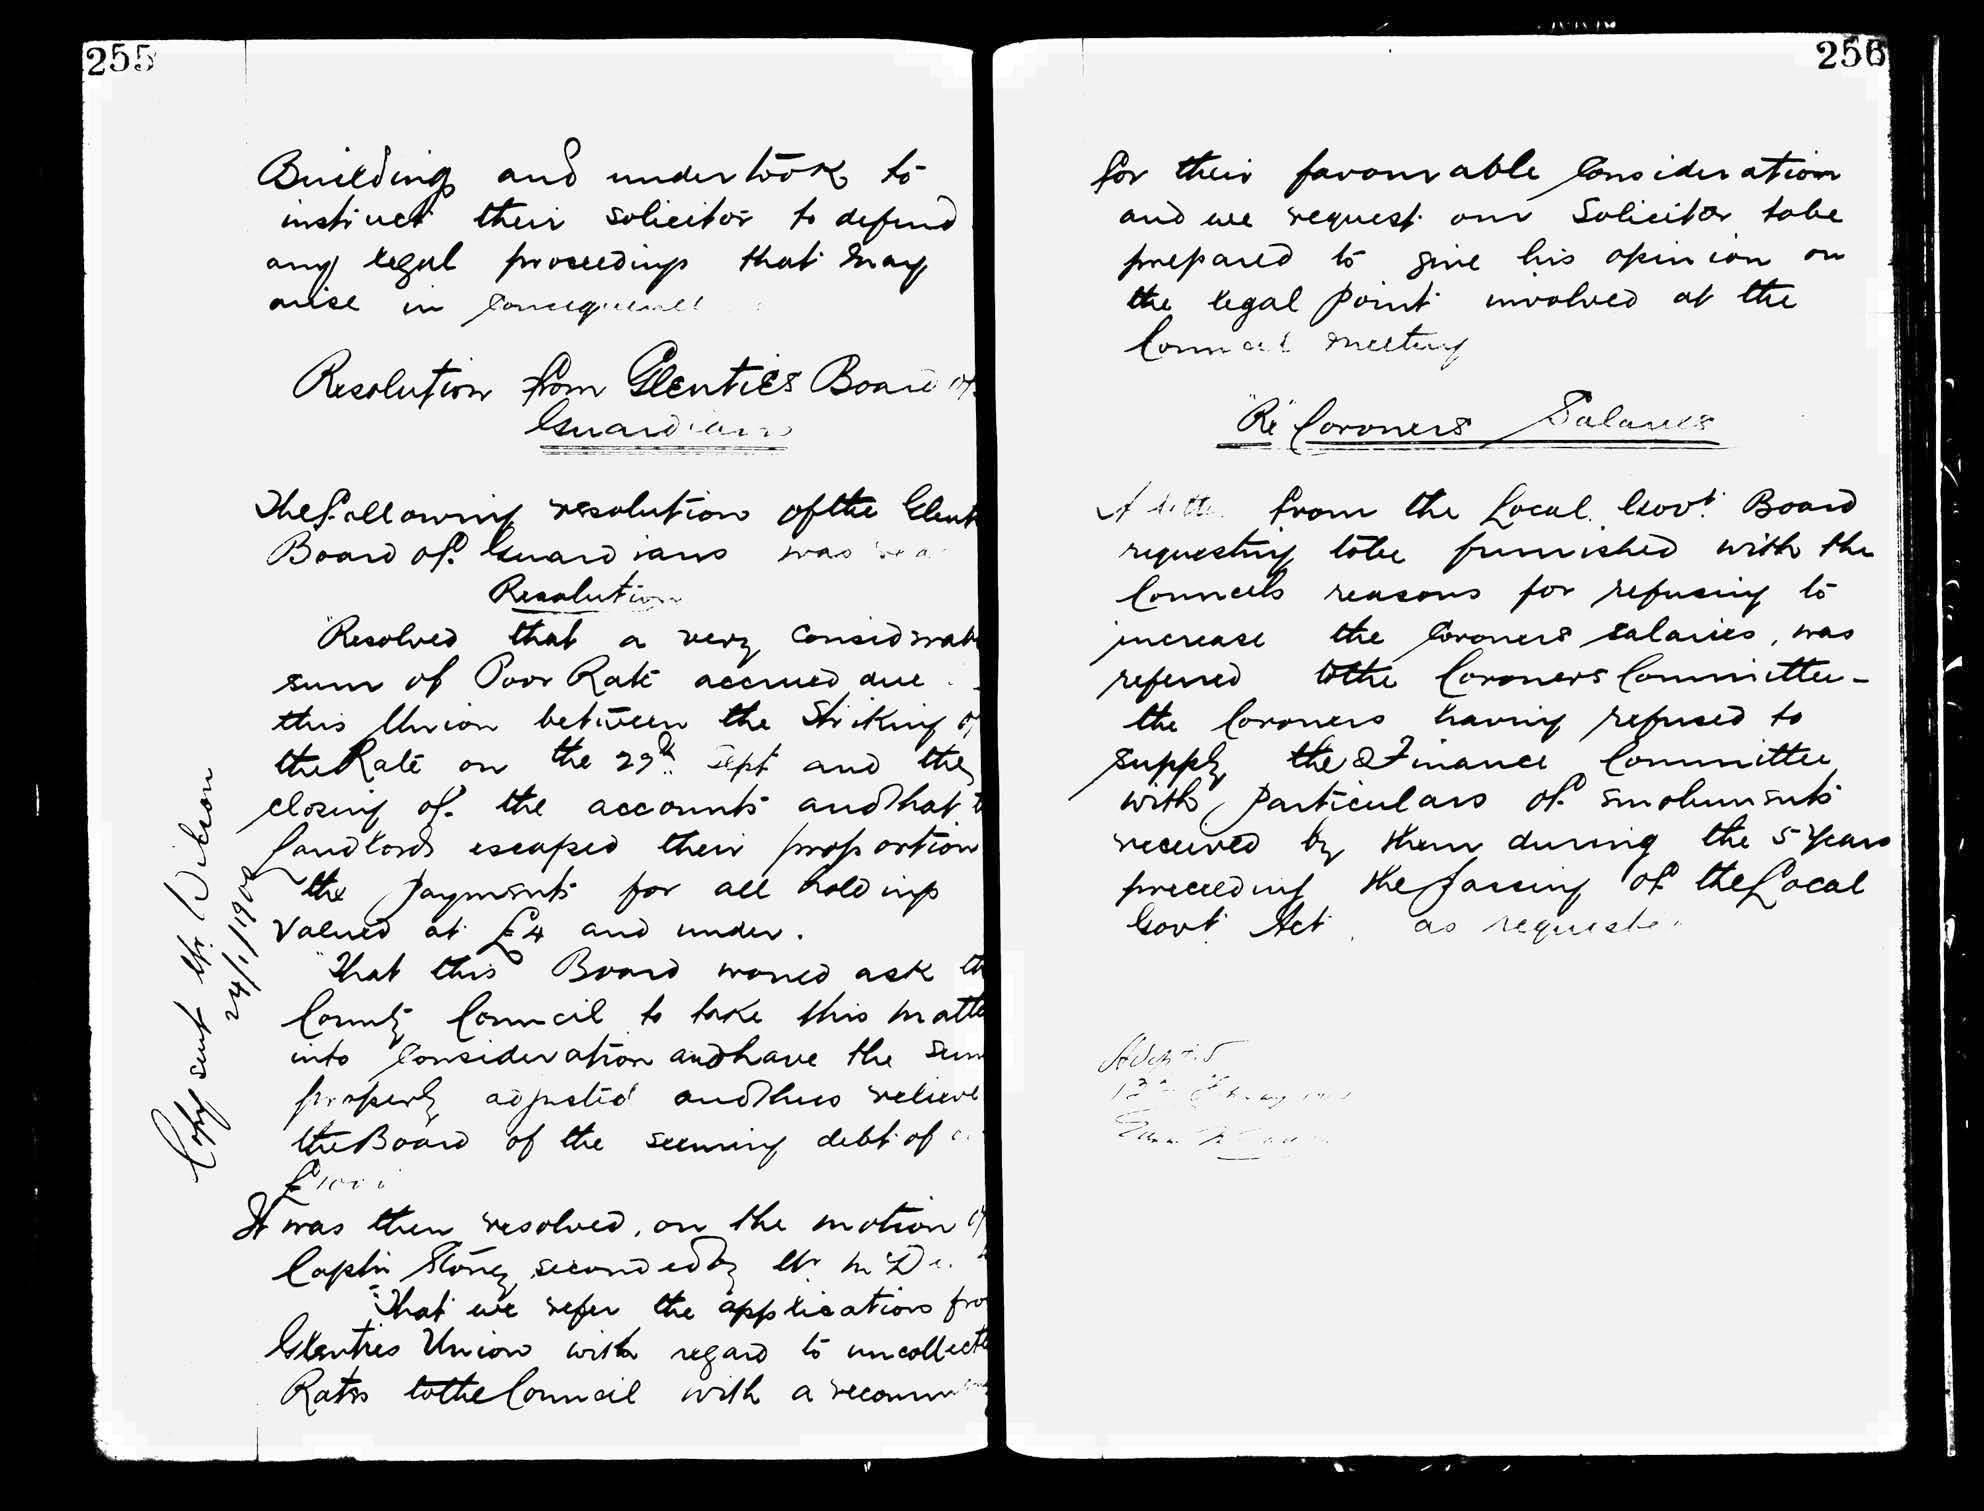 255
Building and undertook to
instruct their solicitor to defend
any legal proceedings that may
arise in consequence
Resolution from Glenties Board of
Guardians
The following resolution of the Glent
Board of Guardians was read
Resolution
"Resolved that a very considerab
sum of Poor Rate accrued due
this Union between the Striking of
the Rate on the 29th Sept and the
closing of the accounts and that t
landlords escaped their proportion
the payments for all holdings
valued at £4 and under.
"That this Board would ask th
County Council to take this matte
into consideration and have the sum
properly adjusted and thus relieve
the Board of the seeming debt of
£1000
It was then resolved, on the motion of
Captn Stoney seconded by Mr
"That we refer the application fro
Glenties Union with regard to uncollecte
Rates to the Council with a recomm
Copy sent Mr. Wilson
24/1/1900
256
for their favourable consideration
and we request our Solicitor to be
prepared to give his opinion on
the legal point involved at the
Council meeting
"Re" Coroners Salaries
A letter from the Local Govt. Board
requesting to be furnished with the
Councils reasons for refusing to
increase the Coroners salaries, was
referred to the Coroners Committee -
the Coroners having refused to
supply the Finance Committee
with particulars of emoluments
received by them during the 5 years
preceding the passing of the Local
Govt. Act. as requested
Adopted